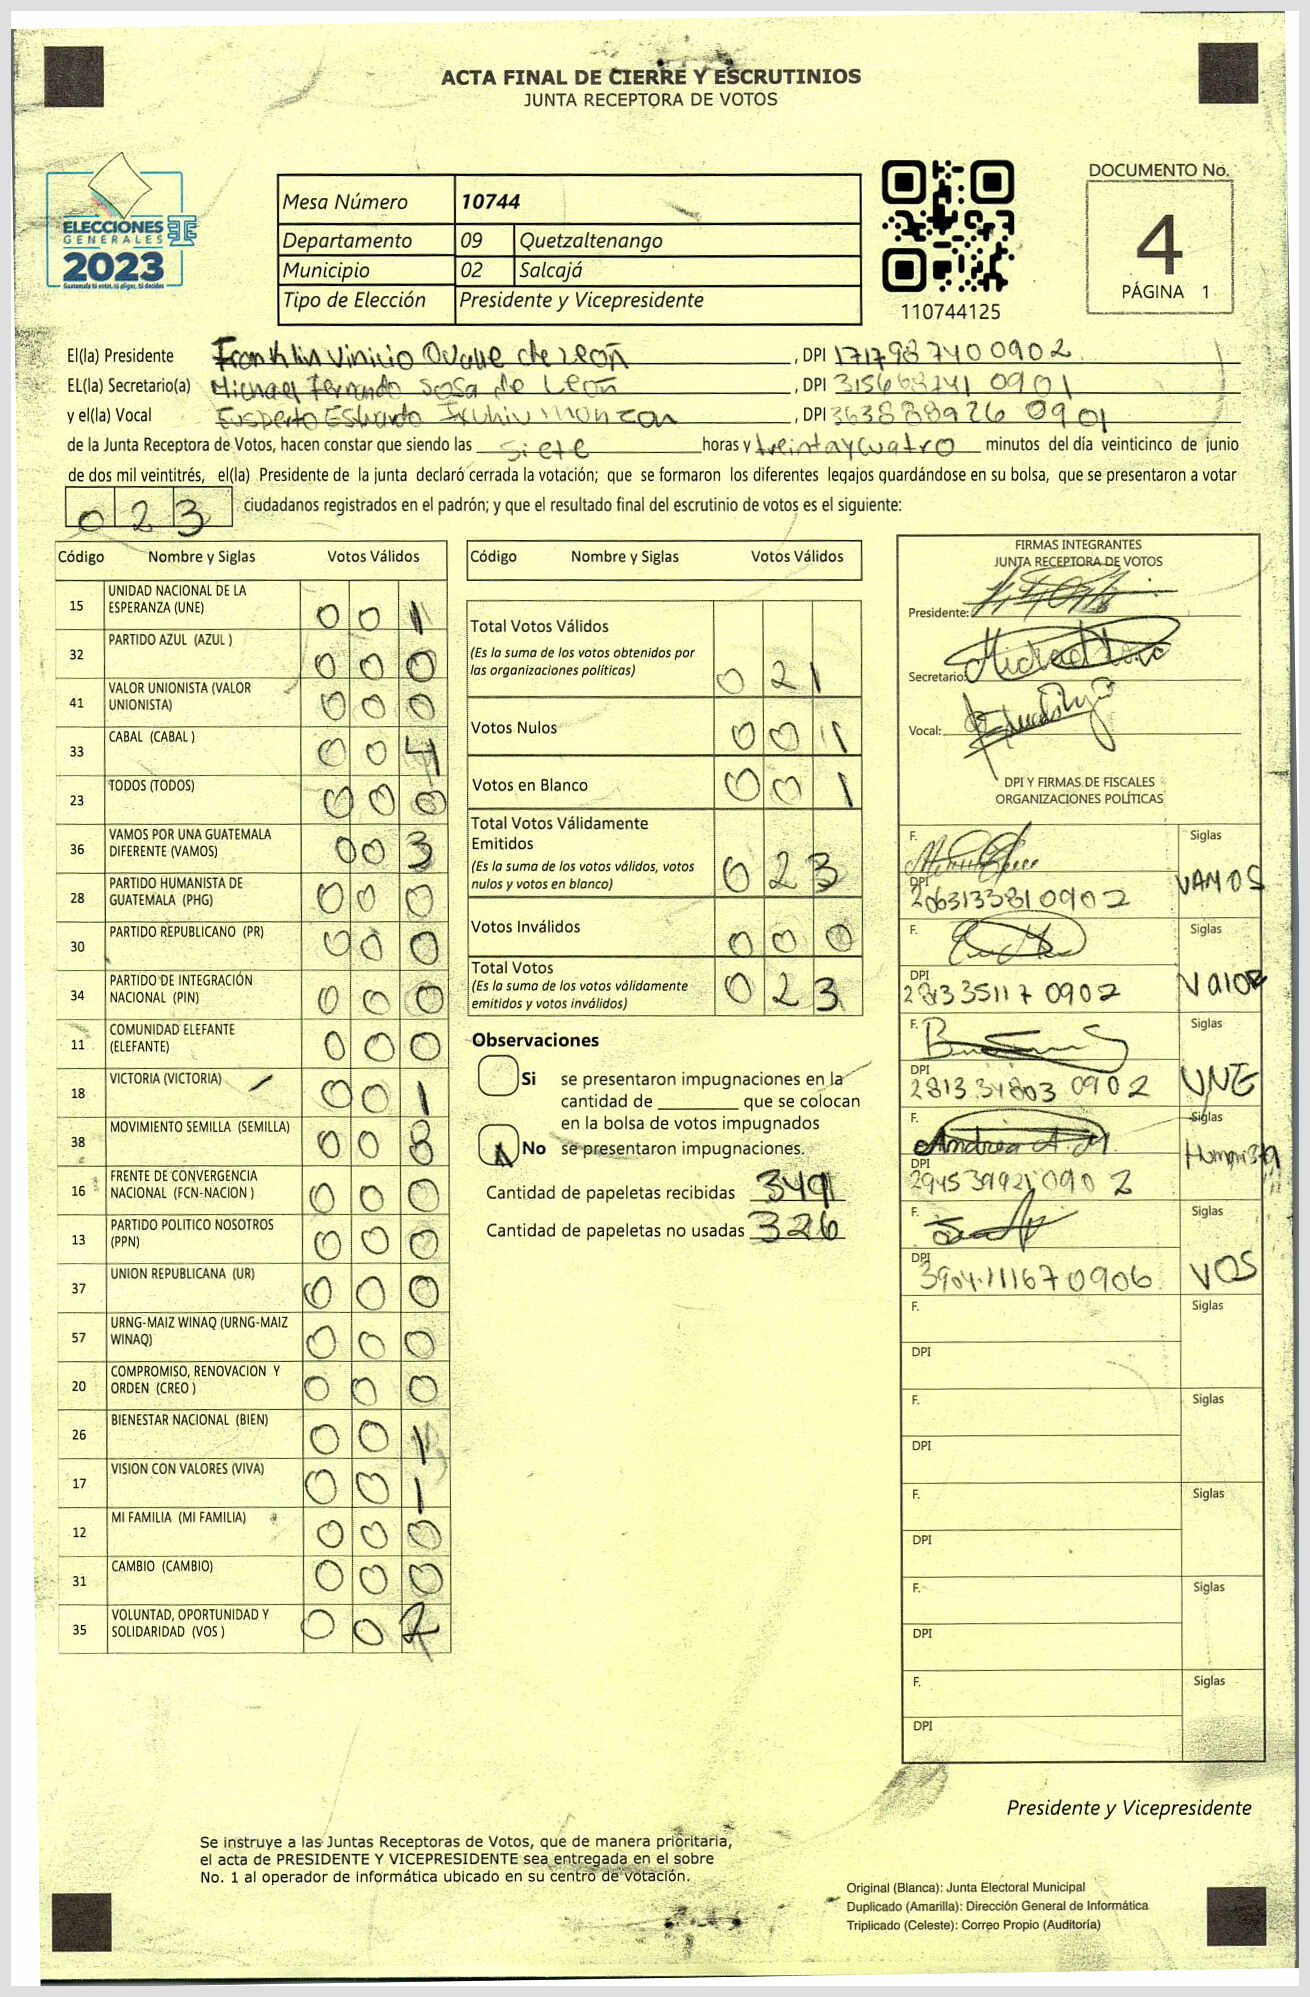 ACTA FINAL DE CIERRE Y ESCRUTINIOS
JUNTA RECEPTORA DE VOTOS
ELECCIONES
GENERALES
2023
Guatemala tú votas, tú eliges, tú decides
Mesa Número 10744
Departamento 09 Quetzaltenango
Municipio 02 Salcajá
Tipo de Elección Presidente y Vicepresidente
110744125
DOCUMENTO No.
4
PÁGINA 1
El(la) Presidente Franklin Vinicio de León , DPI 1717987400902
EL(la) Secretario(a) Michael Fernando Sosa de León , DPI 3156687410901
y el(la) Vocal Estuardo , DPI 3638889260901
de la Junta Receptora de Votos, hacen constar que siendo las siete horas y treinta y cuatro minutos del día veinticinco de junio
de dos mil veintitrés, el(la) Presidente de la junta declaró cerrada la votación; que se formaron los diferentes legajos guardándose en su bolsa, que se presentaron a votar
023 ciudadanos registrados en el padrón; y que el resultado final del escrutinio de votos es el siguiente:
Código Nombre y Siglas Votos Válidos
15 UNIDAD NACIONAL DE LA ESPERANZA (UNE) 0 0 1
32 PARTIDO AZUL (AZUL ) 0 0 0
41 VALOR UNIONISTA (VALOR UNIONISTA) 0 0 0
33 CABAL (CABAL ) 0 0 4
23 TODOS (TODOS) 0 0 0
36 VAMOS POR UNA GUATEMALA DIFERENTE (VAMOS) 0 0 3
28 PARTIDO HUMANISTA DE GUATEMALA (PHG) 0 0 0
30 PARTIDO REPUBLICANO (PR) 0 0 0
34 PARTIDO DE INTEGRACIÓN NACIONAL (PIN) 0 0 0
11 COMUNIDAD ELEFANTE (ELEFANTE) 0 0 0
18 VICTORIA (VICTORIA) 0 0 1
38 MOVIMIENTO SEMILLA (SEMILLA) 0 0 8
16 FRENTE DE CONVERGENCIA NACIONAL (FCN-NACION ) 0 0 0
13 PARTIDO POLITICO NOSOTROS (PPN) 0 0 0
37 UNION REPUBLICANA (UR) 0 0 0
57 URNG-MAIZ WINAQ (URNG-MAIZ WINAQ) 0 0 0
20 COMPROMISO, RENOVACION Y ORDEN (CREO ) 0 0 0
26 BIENESTAR NACIONAL (BIEN) 0 0 1
17 VISION CON VALORES (VIVA) 0 0 1
12 MI FAMILIA (MI FAMILIA) 0 0 0
31 CAMBIO (CAMBIO) 0 0 0
35 VOLUNTAD, OPORTUNIDAD Y SOLIDARIDAD (VOS ) 0 0 2
Código Nombre y Siglas Votos Válidos
Total Votos Válidos
(Es la suma de los votos obtenidos por
las organizaciones políticas) 0 2 1
Votos Nulos 0 0 1
Votos en Blanco 0 0 1
Total Votos Válidamente
Emitidos
(Es la suma de los votos válidos, votos
nulos y votos en blanco) 0 2 3
Votos Inválidos 0 0 0
Total Votos
(Es la suma de los votos válidamente
emitidos y votos inválidos) 0 2 3
Observaciones
Si se presentaron impugnaciones en la
cantidad de ________ que se colocan
en la bolsa de votos impugnados
No se presentaron impugnaciones.
Cantidad de papeletas recibidas 349
Cantidad de papeletas no usadas 326
FIRMAS INTEGRANTES
JUNTA RECEPTORA DE VOTOS
Presidente:
Secretario:
Vocal:
DPI Y FIRMAS DE FISCALES
ORGANIZACIONES POLÍTICAS
F. Siglas
VAMOS
DPI
2063133810902
F. Siglas
Valor
DPI
281335117 0902
F. Siglas
UNE
DPI
2813 34803 0902
F. Andrea A. M. Siglas
Humanista
DPI
294539921 0902
F. Siglas
VOS
DPI
3904111670906
F. Siglas
DPI
F. Siglas
DPI
F. Siglas
DPI
F. Siglas
DPI
F. Siglas
DPI
Presidente y Vicepresidente
Se instruye a las Juntas Receptoras de Votos, que de manera prioritaria,
el acta de PRESIDENTE Y VICEPRESIDENTE sea entregada en el sobre
No. 1 al operador de informática ubicado en su centro de votación.
Original (Blanca): Junta Electoral Municipal
Duplicado (Amarilla): Dirección General de Informática
Triplicado (Celeste): Correo Propio (Auditoría)